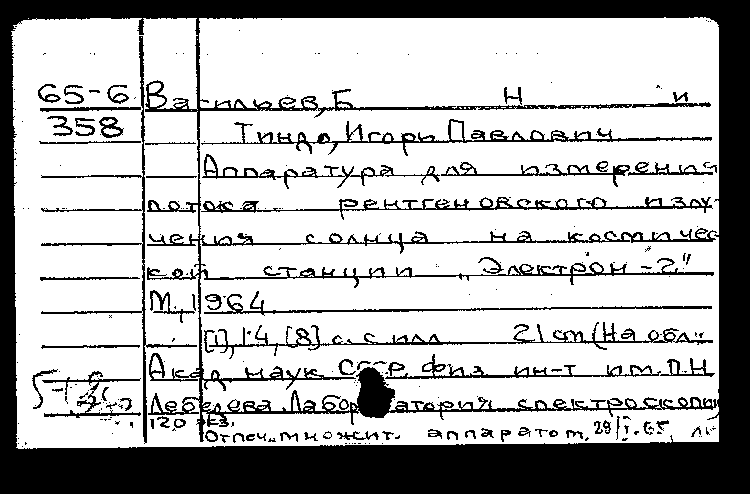 65-6 Васильев, Б Н и
358 Тиндо, Игорь Павлович
Аппаратура для измерения
потока рентгеновского излу-
чения солнца на космичес
кой станции „Электрон-2."
М., 1964
[1], 14, [8] с. с илл 21 cm (На обл.:
Акад наук СССР. Физ ин-т им. П.Н.
Лебедева. Лаборатория спектроскопии
120 экз.
Отпеч. множит. аппаратом, 28/I-65,